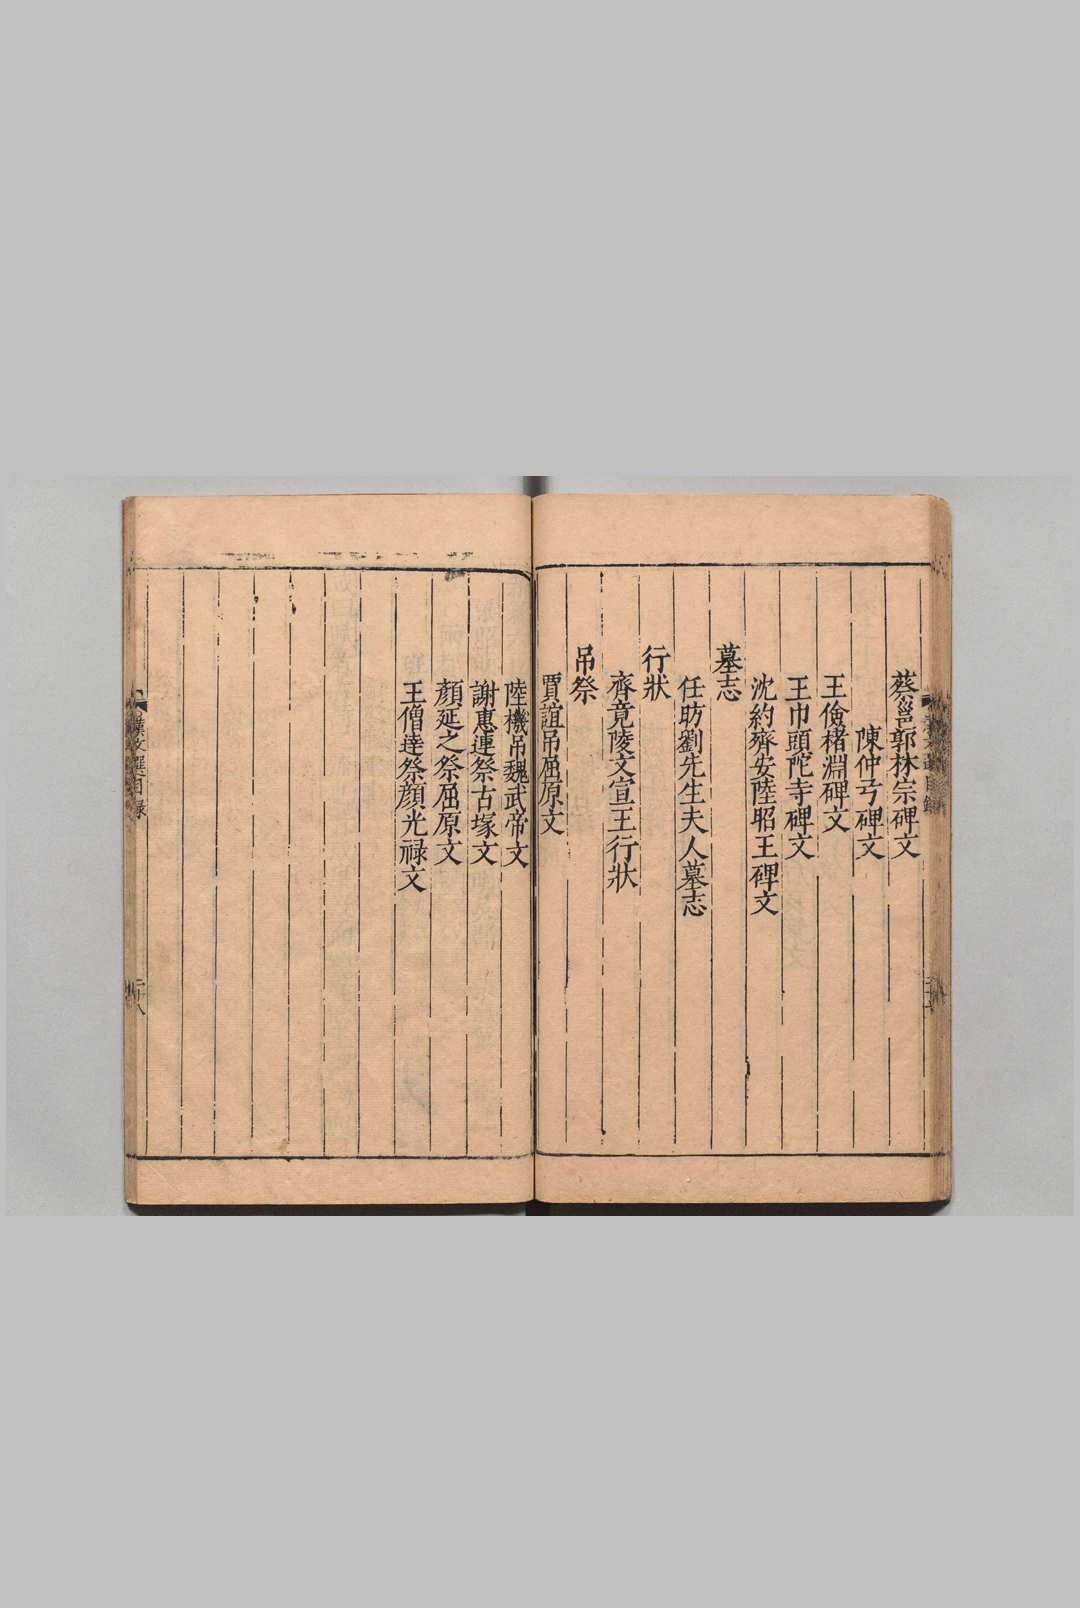 蔡邕郭林宗碑文
陳仲弓碑文
王儉楮淵碑文
王巾頭陀寺碑文
沈約齊安陸昭王碑文
墓志
任昉劉先生夫人墓志
行狀
齊竟陵文宣王行狀
吊祭
賈誼吊屈原文
陸機吊魏武帝文
謝惠連祭古塚文
顏延之祭屈原文
王僧達祭顏光祿文
選目錄